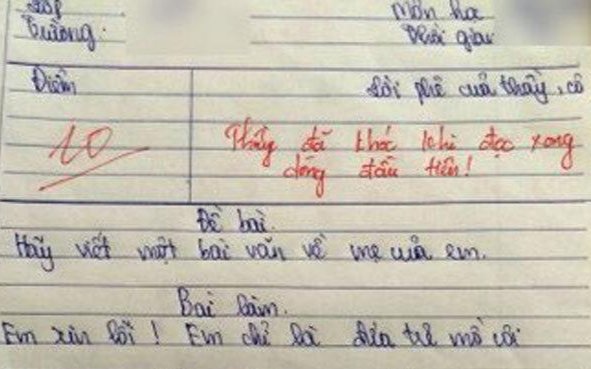 Lớp
Môn học
Trường:
Thời gian
Điểm
Lời phê của thầy, cô
10
Thầy đã khóc khi đọc xong
dòng đầu tiên!
Đề bài.
Hãy viết một bài văn về mẹ của em.
Bài làm.
Em xin lỗi! Em chỉ là đứa trẻ mồ côi